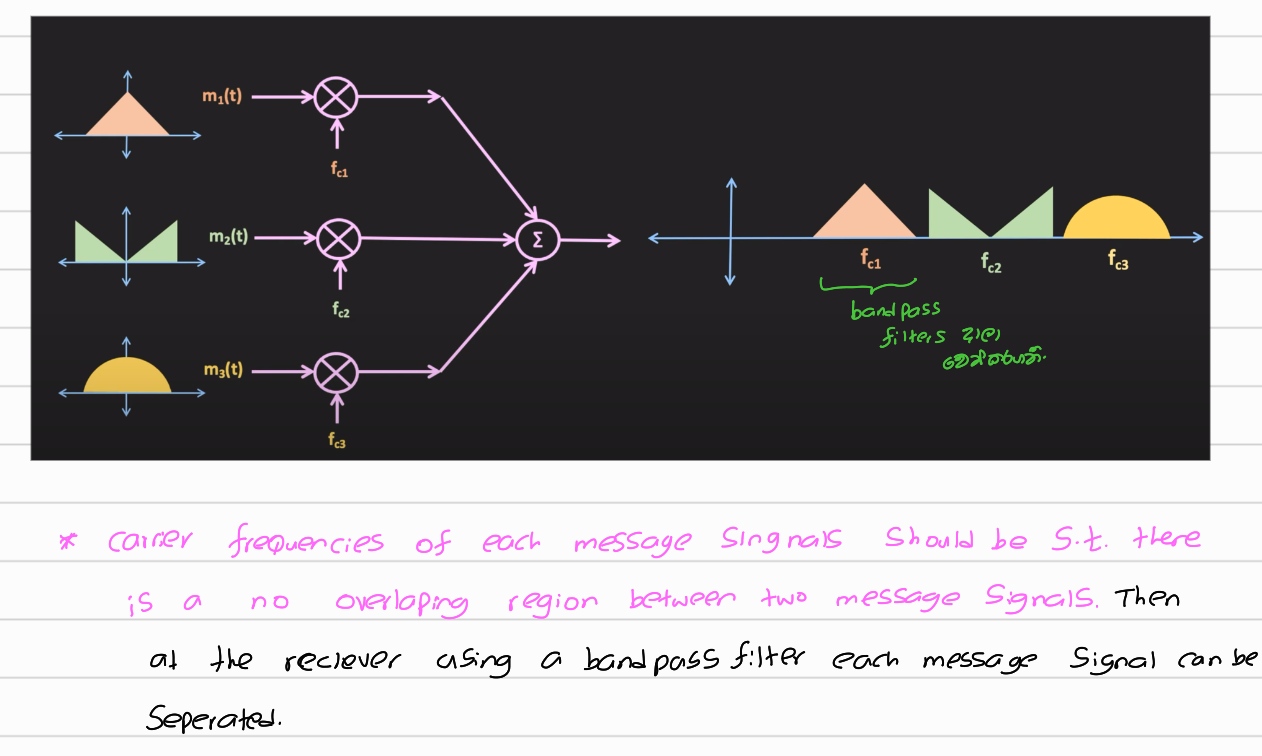 m1(t)
fc1
m2(t)
fc2
Σ
m3(t)
fc3
fc1
fc2
fc3
bandpass
filters දාලා
* carrier frequencies of each message Singnals should be s.t. there
is a no overlaping region between two message signals. Then
at the reciever using a bandpass filter each message signal can be
Seperated.